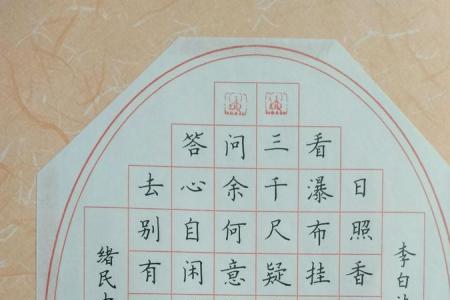 李白
日照香
看瀑布挂
三千尺疑
问余何意
答心自闲
去别有
绪民